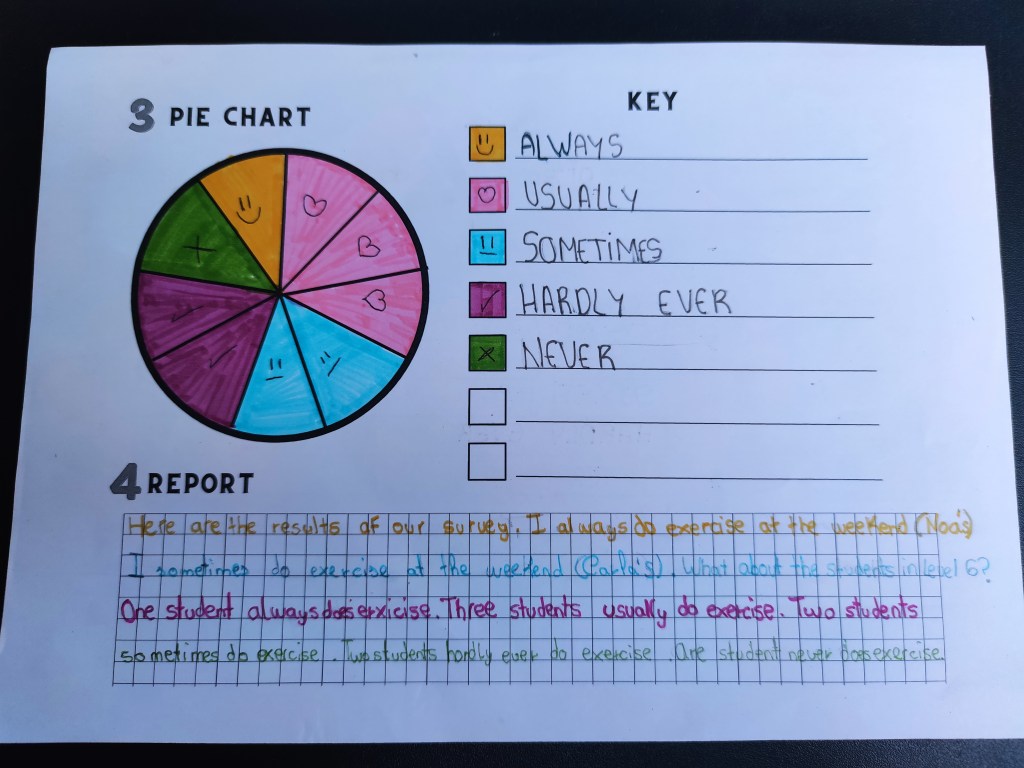 3 PIE CHART
KEY
ALWAYS
USUALLY
SOMETIMES
HARDLY EVER
NEVER
4 REPORT
Here are the results of our survey. I always do exercise at the weekend (Noa's)
I sometimes do exercise at the weekend (Carla's). What about the students in level 6?
One student always does erxicise. Three students usually do exercise. Two students
sometimes do exercise. Two students hardly ever do exercise. One student never does exercise.